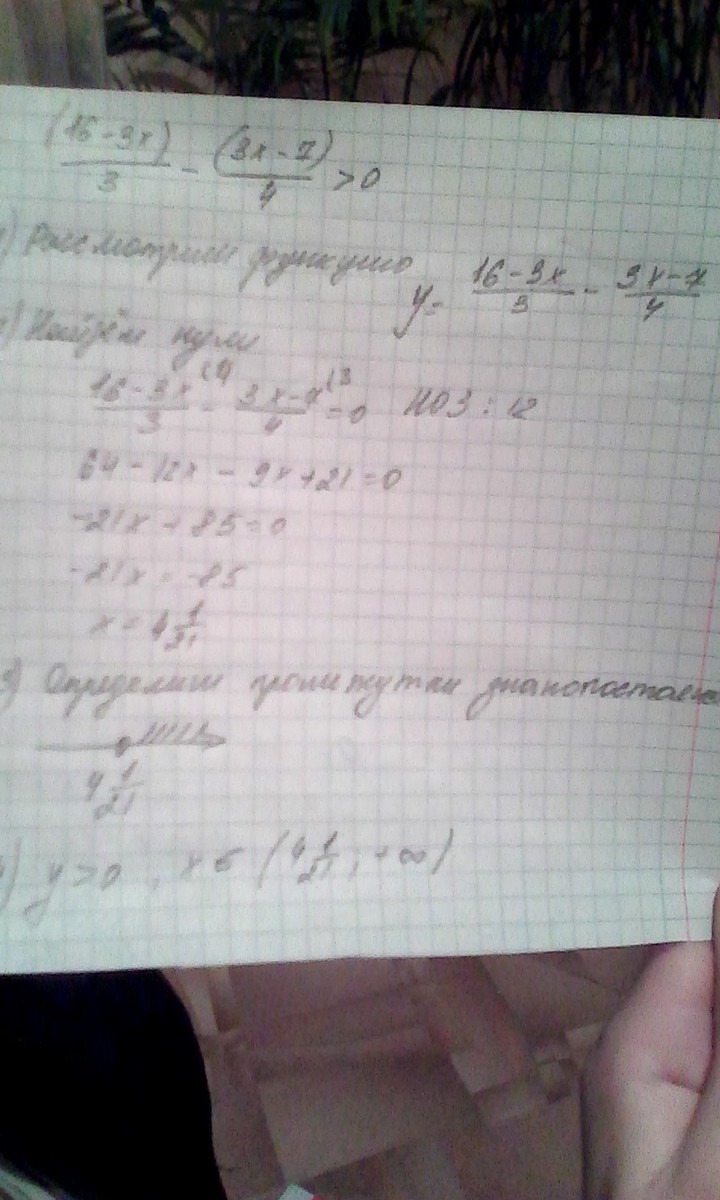 (16-3x)/3 - (3x-7)/4 > 0
1) Рассмотрим функцию
y = (16-3x)/3 - (3x-7)/4
2) Найдём нули
(16-3x)/3 (4 - (3x-7)/4 (3 = 0 НОЗ : 12
64-12x-9x+21=0
-21x+85=0
-21x=-85
x=4 1/21
3) Определим промежутки знакопостоян
4 1/21
4) y>0, x ∈ (4 1/21; +∞)